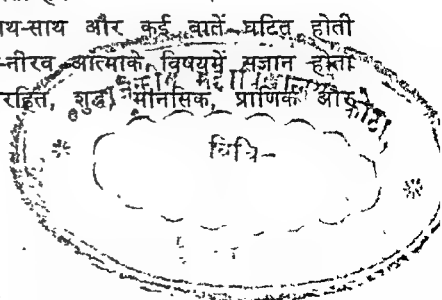 थ-साथ और कई बातें घटित होती
-नीरव आत्माके विषयमें सज्ञान होता
रहित, शुद्ध मानसिक, प्राणिक और